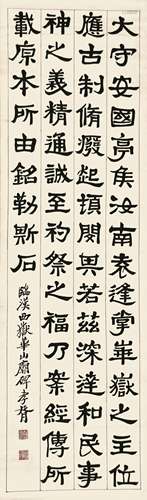 大守安國亭矦汝南袁逢掌華嶽之主位
應古制脩癈起頓閔其若茲深達和民事
神之義精通誠至礿祭之福乃案經傳所
載原本所由銘勒斯石
臨漢西嶽華山廟碑孝胥